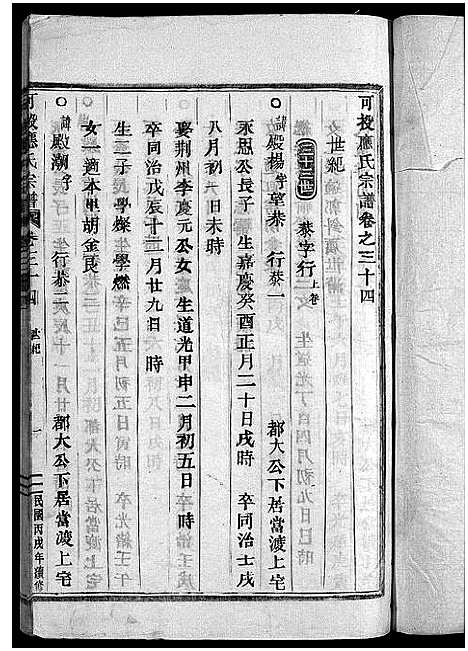 可投應氏宗譜卷之三十四
世紀
三十三世 恭字行上卷
諱殿楊 字望恭 行恭一 郡大公下居當渡上宅
永恩公長子 生嘉慶癸酉正月二十日戌時 卒同治壬戌
八月初六日未時
娶荆州李慶元公女 生道光甲申二月初五日 時
卒同治戊辰十二月廿九日 時
生二子 學燦 生學燃
女一適本甲胡金良
諱殿潮 字 行恭二 郡大公下居當渡上宅
可投應氏宗譜 卷之三十四 世紀 一 民國丙戌年續修